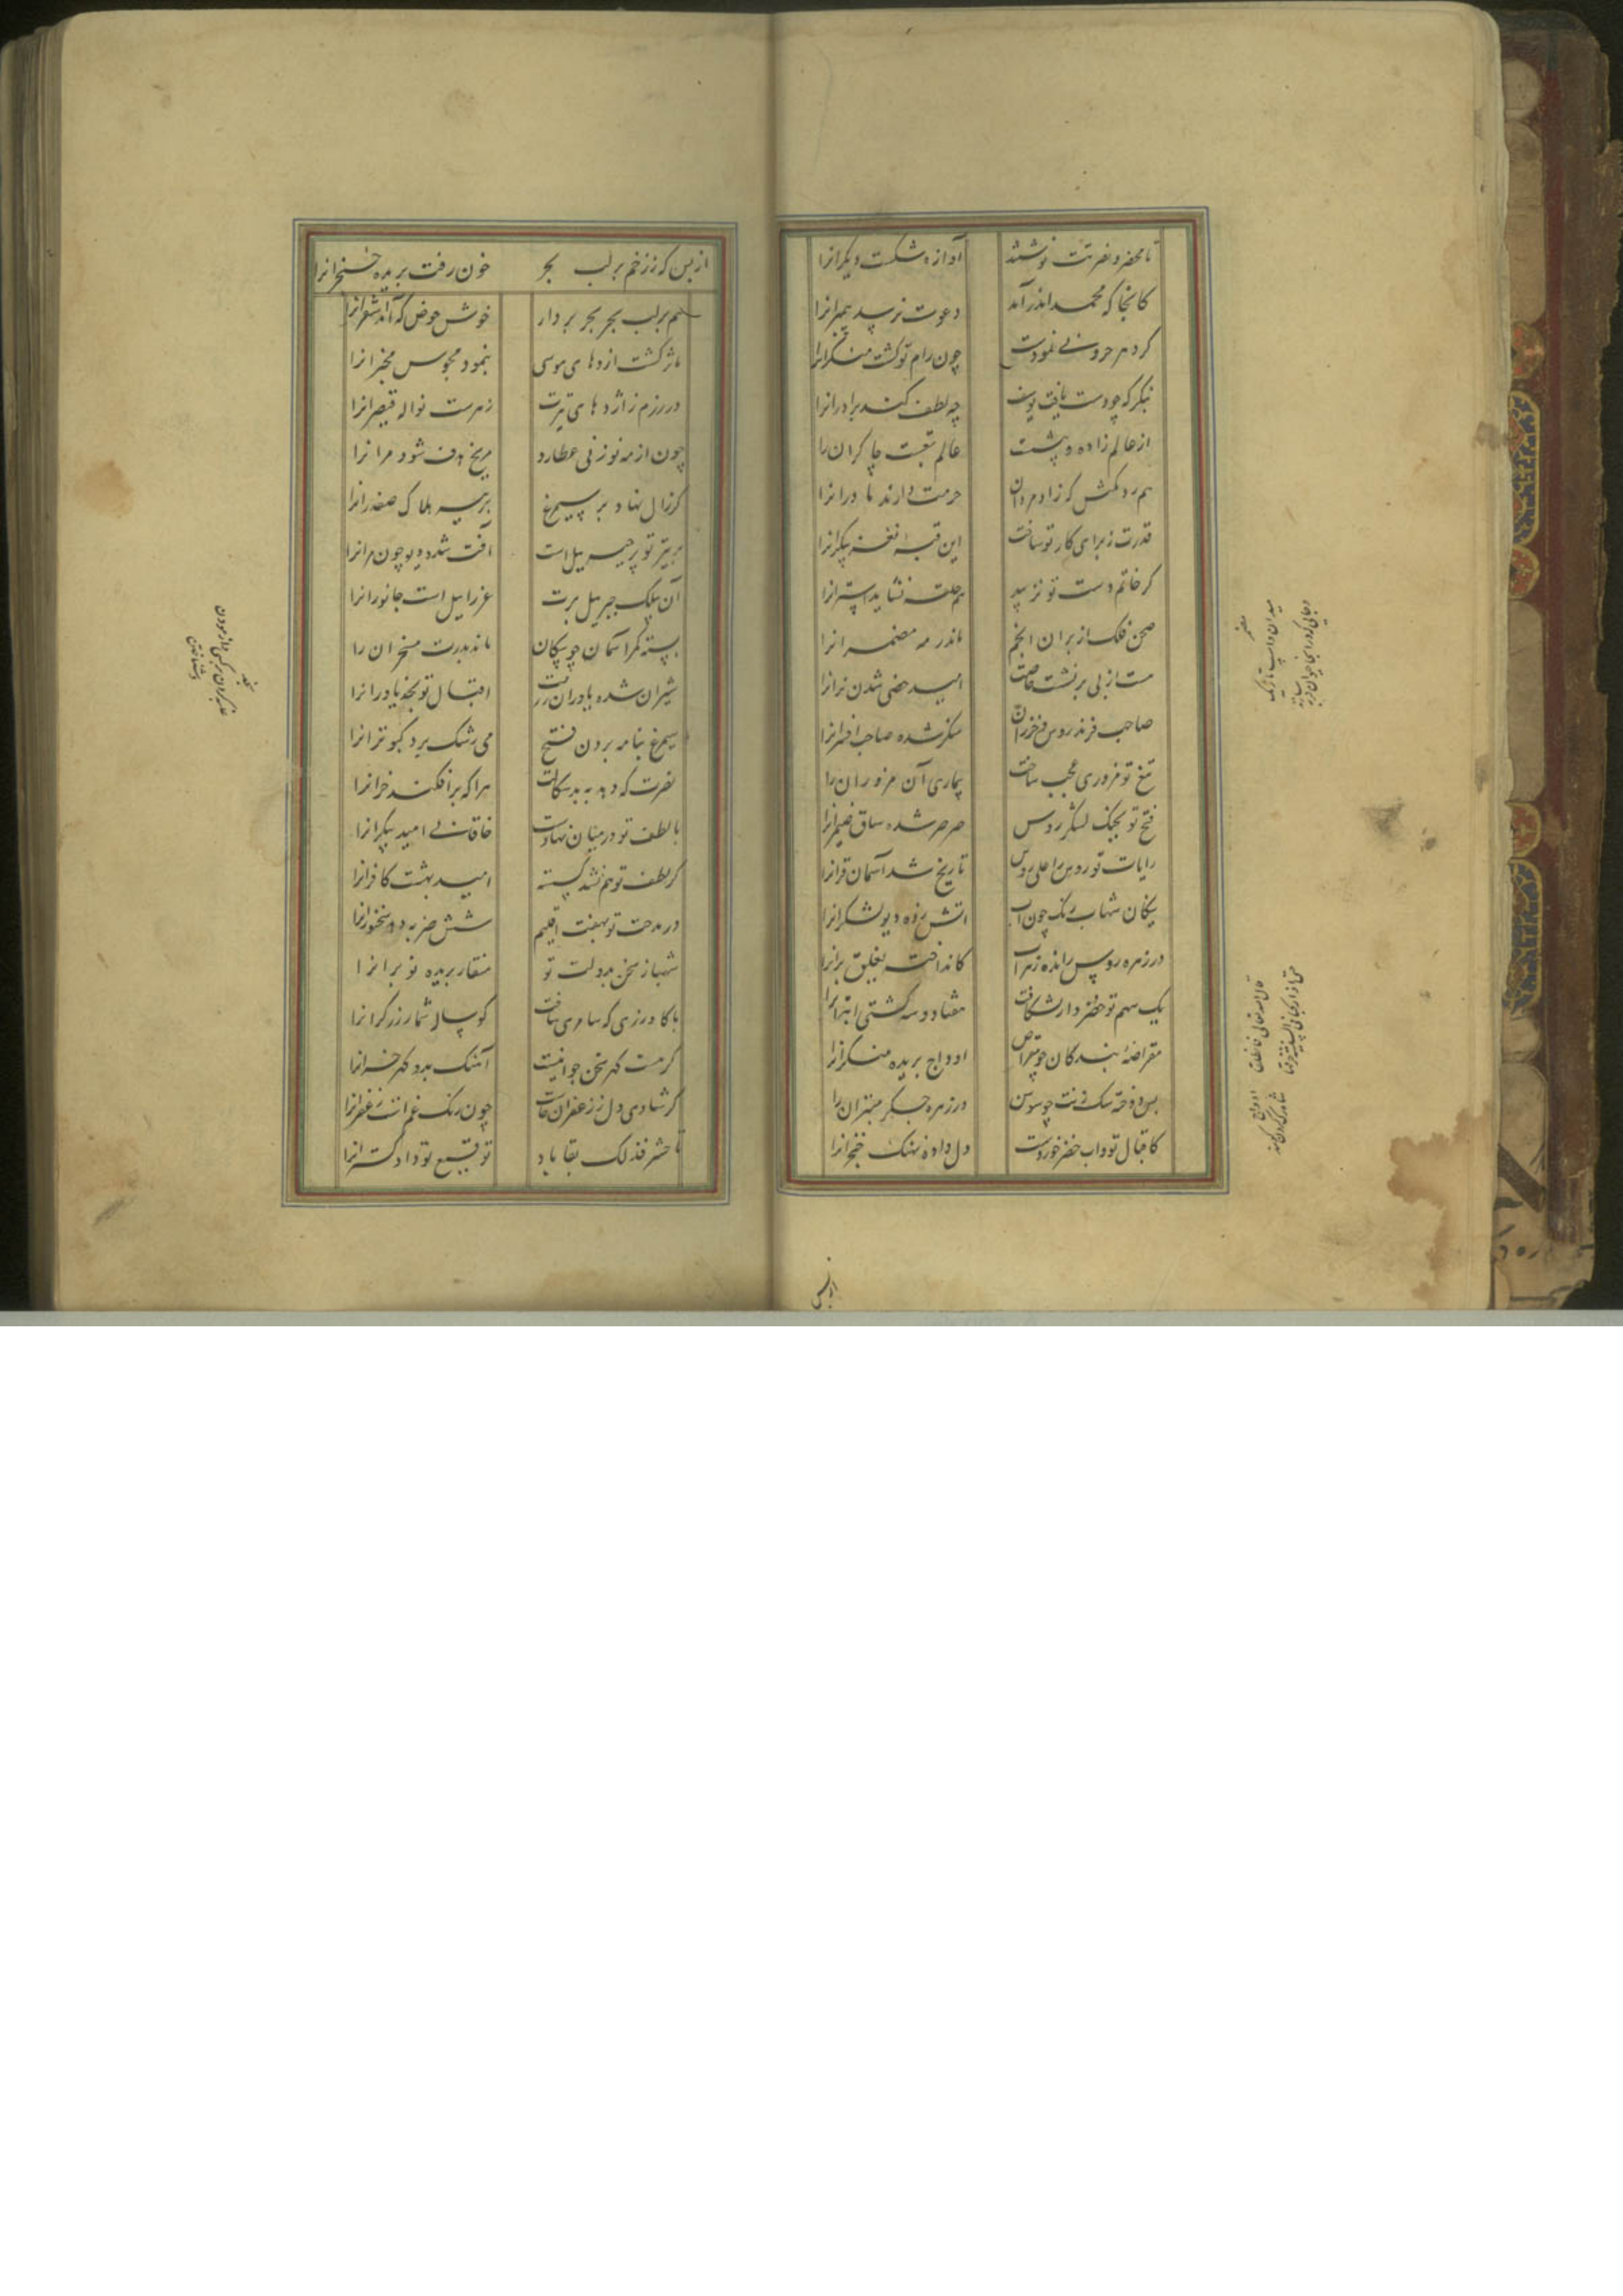 تا محضر نصرتت نوشتند آوازه شکست دیکرانرا
کانجا که محمد اندر آمد دعوت نرسد پیمبرانرا
کر دهر حرونی نمودت چون رام تو کشت منکر آنرا
بنکر که چو دست یافت یوسف چه لطف کند برادرانرا
از عالم زاده و پیشت عالم تبعت چاکران را
هم رد مکنش که زاد مردان حرمت دارند مادرانرا
قدرت ز برای کار تو ساخت این قبه نغز پیکرانرا
کر خاتم دست تو نزیبد هم حلقه نشاید استرانرا
صحن فلک از بران انجم ماند رمه مضمرانرا
مست از پی بر نشست خاصت امید خصی شدن نرانرا
صاحب فرند روس و خزران منکر شده صاحب افسرانرا
تیغ تو مزوری عجب ساخت بیماری آن مزوران را
فتح تو بجنک لشکر روس
رایات تو روس را علی روس صرصر شده ساق ضیمرانرا
تاریخ شد آسمان قرانرا
پیکان شهاب رنک چون آب آتش زده دیو لشکرانرا
در زهره روس رانده زهر آب کانداخت یغلق پرانرا
یک سهم تو خضر وار بشکافت هفتاد و سه کشتی ابترانرا
مقراضهٔ بندکان چو مقراص اوداج بریده منکرانرا
بس دوخته سک زنت چو سوزن در زهره جکر مبتران را
کاقبال تو و آب خضر خوردست دل داده نهنک خنجرانرا
از بس که ز زخم بر لب بحر خون رفت بریده حنجرانرا
هم بر لب بحر بحر بردار خوش حوض که آمد اشقرانرا
مار کشت ازدهای موسی بنمود مجوس مخبرانرا
در رزم ز اژدهای تیرت زهرست نواله قیصرانرا
چون از مه نو زنی عطارد مریخ هدف شود مرانرا
کر زال نهاد پر سیمرغ بر تیر هلاک صفدرانرا
بر تیر تو پر جبرییل است آفت شده دیو چون مرانرا
آن بیلک جبرییل پرت عزراییل است جانورانرا
بسته کمر آسمان چو پیکان ماند بدرت مسخران را
شیران شده یاوران رزمت اقبال تو نجده یاورانرا
سیمرغ بنامه بردن فتح می رشک برد کبوترانرا
نصرت که دهد به بدسکالت هرا که برافکند خرانرا
با لطف تو در میان نهادست خاقانی امید بیکرانرا
کز لطف تو هم نشد کسسته امید بهشت کافرانرا
در مدحت تو بهفت اقلیم شش ضربه دهد سخنورانرا
شهباز سخن بدولت تو منقار بریده نو پرانرا
با کاو زری که سامری ساخت کوساله شمار زرکرانرا
کرمست کهر سخن جوانیست
کر شادی دل ز زعفران خاست چون رنک غم است زعفرانرا
تا حشر فذلک بقا باد توقیع تو داد کسترانرا